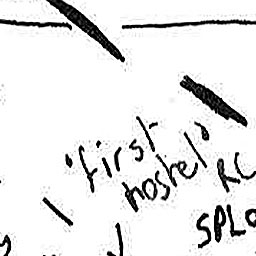 "first
hostel"
RC
SPLO